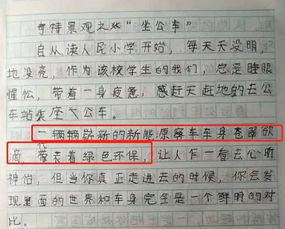 奇特景观之"坐公车"
自从读人民小学开始，每天天没明，
地没亮，作为该校学生的我们，总是睡眼
惺忪，带着一身疲惫，感赶天赶地的去公
车站乘座公车。
一辆辆崭新的新能源餐车车身香馨欲
滴，蕾表着绿色环保，让人乍一看去心旷
神怡，但当你真正走进去的时候，你会发
现里面的世界和车身完全是一个鲜明的对
比。